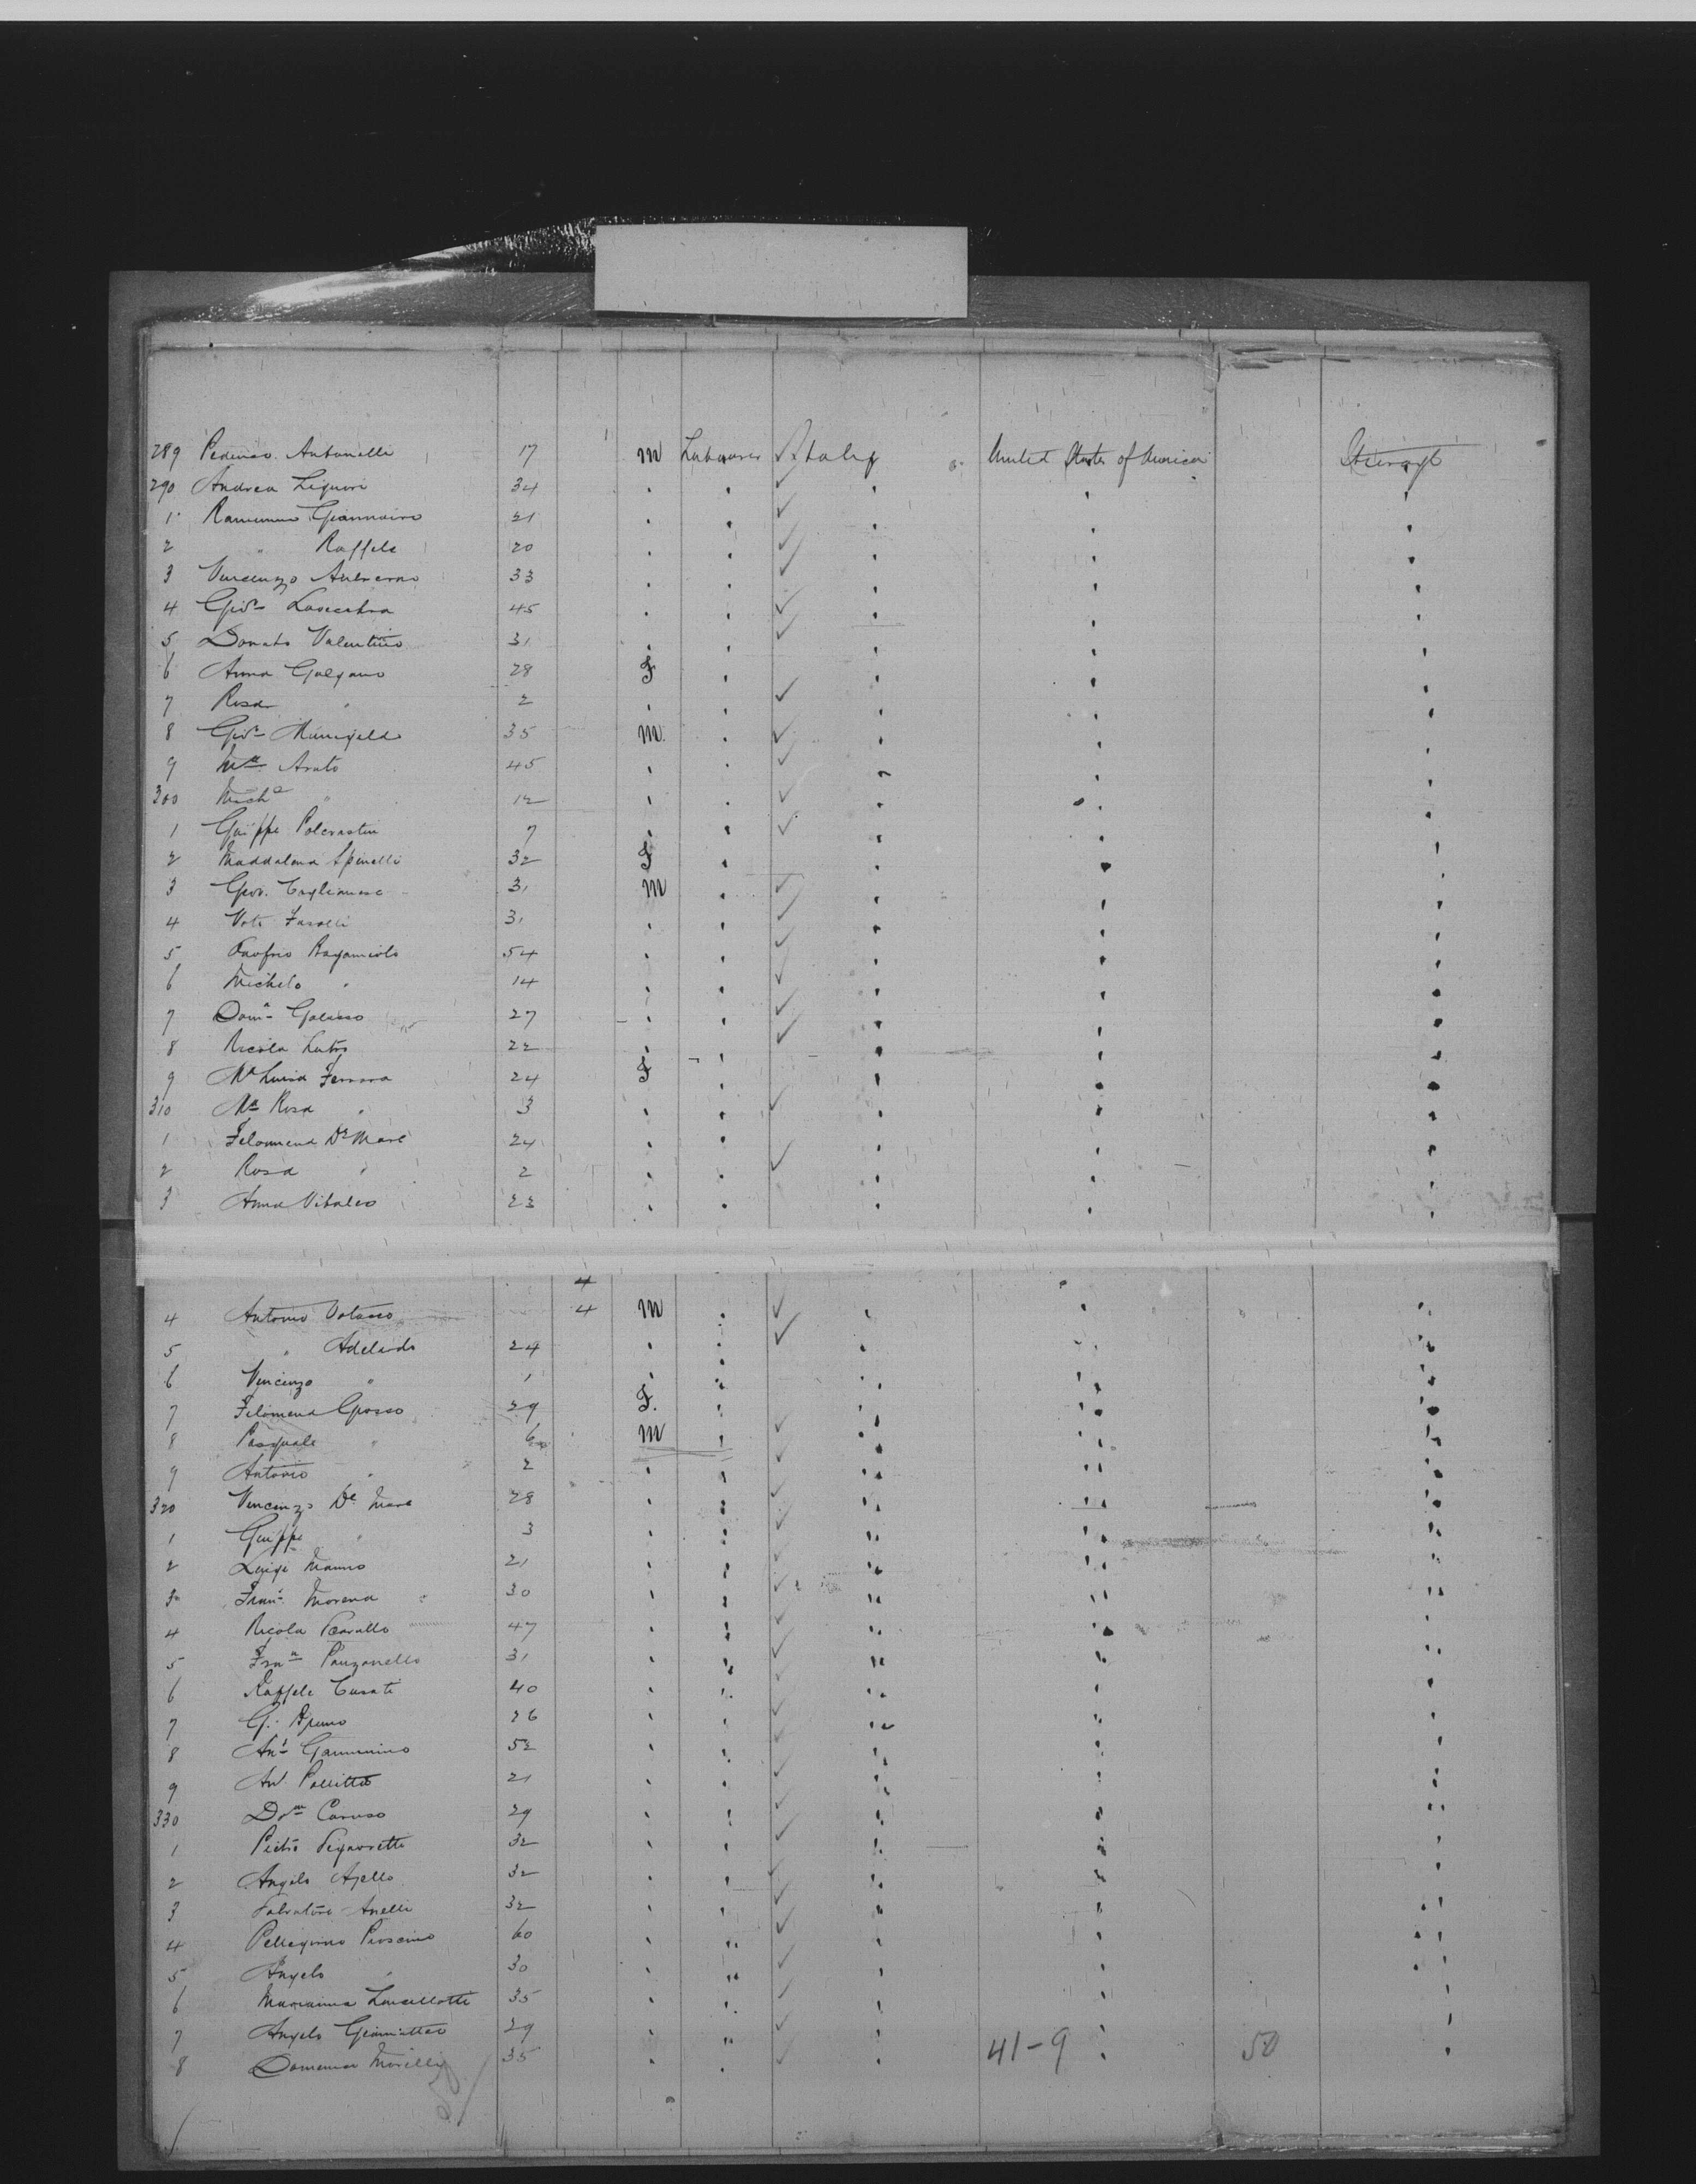 289 Antonelli 17 m Labourer Italy United States of America Steerage
290 Andrea Liguori 34 " " " " "
1 21 " " " " "
2 " Raffele 20 " " " " "
3 Vincenzo 33 " " " " "
4 Giov. 45 " " " " "
5 Donato Valentino 31 " " " " "
6 Anna Galgano 28 F " " " "
7 Rosa " 2 " " " " "
8 Giov. 35 m " " " "
9 Arato 45 " " " " "
300 Mich " 12 " " " " "
1 Guippe Polcrastin 7 " " " " "
2 Maddalena Spinelli 32 F " " " "
3 Giov. 31 m " " " "
4 Vote Fasolli 31 " " " " "
5 Onofrio 54 " " " " "
6 Michele " 14 " " " " "
7 Dom. Galasso 27 " " " " "
8 Nicola 22 " " " " "
9 Ma Luisa Ferrara 24 F " " " "
310 Ma Rosa " 3 " " " " "
1 Filomena De Mare 24 " " " " "
2 Rosa " 2 " " " " "
3 Anna Vitaleo 23 " " " " "
4
4 Antonio Volasco 4 m " " " "
5 " Adelaide 24 " " " " "
6 Vincenzo " 1 " " " " "
7 Filomena Grosso 29 F. " " " "
8 Pasquale " 6 m " " " "
9 Antonio " 2 " " " " "
320 Vincenzo De Mare 28 " " " " "
1 Guippe " 3 " " " " "
2 Luigi Mauro 21 " " " " "
3 Fran. Morena 30 " " " " "
4 Nicola 47 " " " " "
5 Fran Panzanello 31 " " " " "
6 Raffele Cusati 40 " " " " "
7 26 " " " " "
8 Ant. 52 " " " " "
9 Ant. Pollitto 21 " " " " "
330 Dom Caruso 29 " " " " "
1 Pietro 32 " " " " "
2 Angelo Ajello 32 " " " " "
3 Salvatore Anelli 32 " " " " "
4 Pellegrino 60 " " " " "
5 Angelo " 30 " " " " "
6 Marianna Lancellotti 35 " " " " "
7 Angelo Giamatteo 29 " " " " "
8 Domenica Morelli 35 " " " 41-9 " 50 "